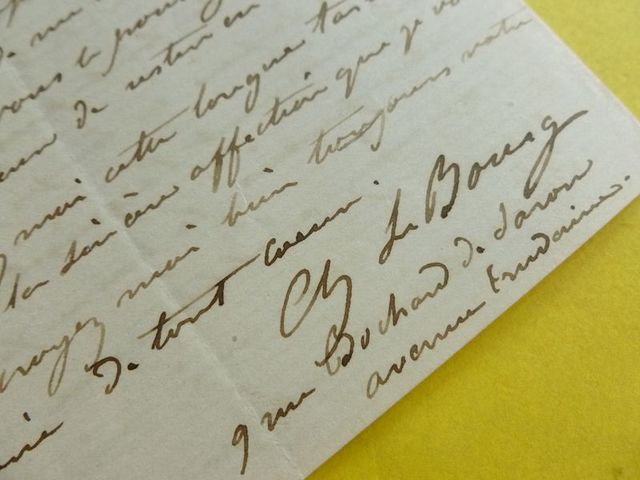 vous le
de rester en
moi cette longue
la sincère affection que je vo
croyez moi bien toujours votre
de tout coeur.
Ch Le Bourg
9 rue Bochard de Saron
avenue Trudaine.